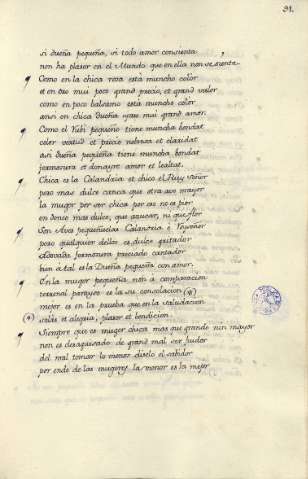 91.
si dueña pequeña, si todo amor consienta
non ha plaser en el Mundo que en ella non se sienta
Como en la chica rosa está muncho color
et en oro mui poco grand precio, et grand valor
como en poco balsamo está muncho olor
ansi en chica dueña yaze mui grand amor.
Como el Rubi pequeño tiene muncha bondat
color vertud et precio nobreza et claridat
asi dueña pequeña tiene muncha bondat
fermosura et donayre amor et lealtat.
Chica es la Calandria et chico el Ruy señor
pero mas dulce canta que otra ave mayor
la muger por ser chica por eso no es pior
en doneo mas dulce, que azucar, ni que flor
Son Aves pequeñuelas Calandria è Ruyseñor
pero qualquier dellas es dulce gritador
Adonada fermosura preciado cantador
bien atal es la Dueña pequeña con amor.
En la muger pequeña non a comparacion
terrenal parayso es la su consolacion
mejor es en la prueba que en la salutacion
solás et alegria, plaser et bendicion.
Siempre quis muger chica mas que grande nin mayor
non es desaguisado de grand mal ser fuidor
del mal tomar lo menos diselo el sabidor
por ende de las mugeres la menor es la mejor